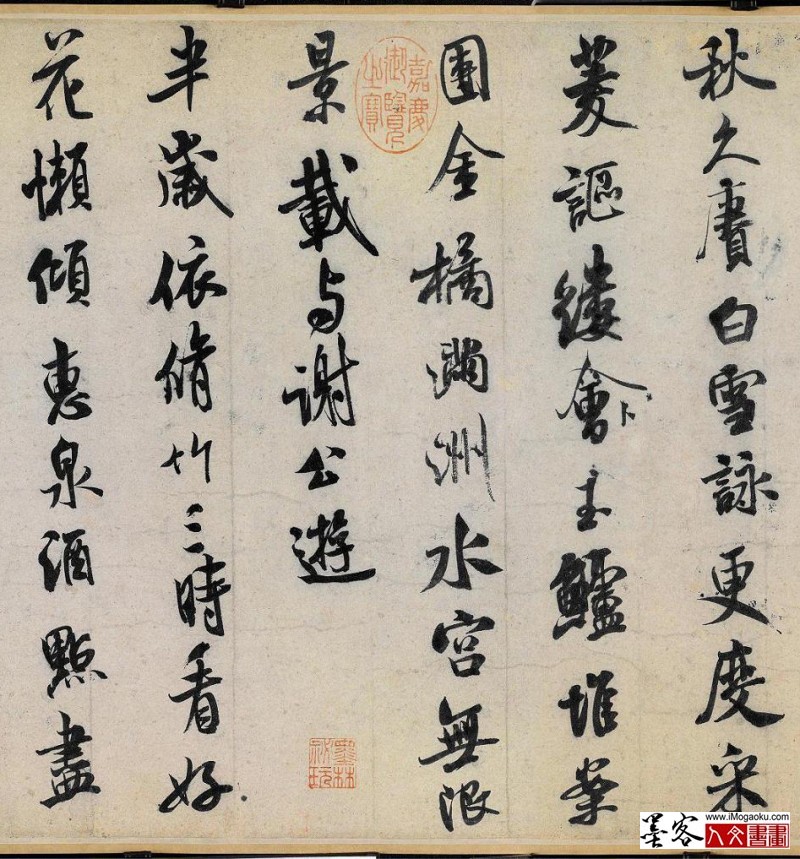 秋久賡白雪詠更度采
菱謳縷會卜玉鱸堆案
團金橘滿洲水宮無限
景載与謝公遊
半歲依脩竹三時看好
花懶傾惠泉酒點盡
嘉慶御覽之寶
www.iMogaoku.com
墨客人文書畫